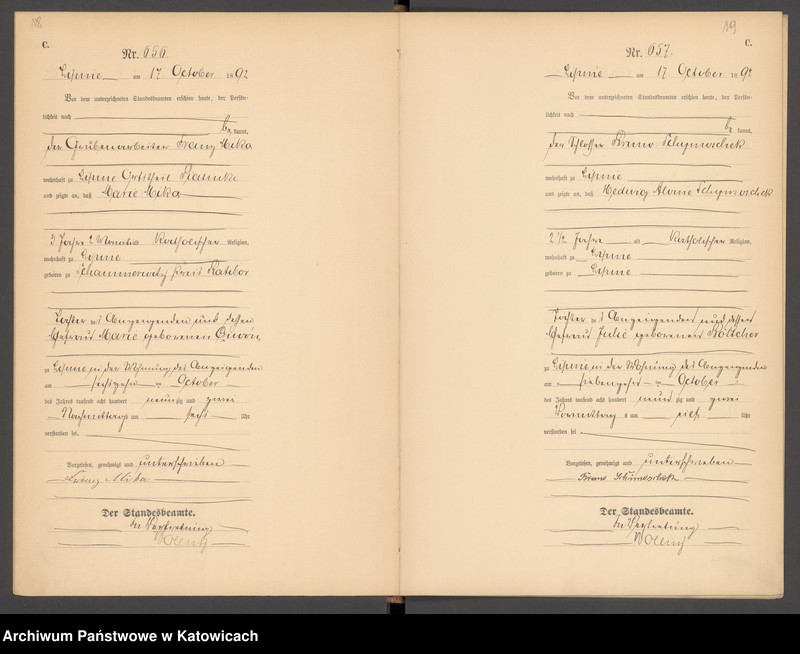 C.
Nr. 656
Lipine am 17 October 1892
Vor dem unterzeichneten Standesbeamten erschien heute, der Persön-
lichkeit nach
be kannt,
der Grubenarbeiter Franz Mika
wohnhaft zu Lipine Ortstheil
und zeigte an, daß Marie Mika
3 Jahre 2 Monate Katholischer Religion,
wohnhaft zu Lipine
geboren zu Kreis Ratibor
Tochter des Anzeigenden und dessen
Ehefrau Marie geborenen
zu Lipine in der Wohnung des Anzeigenden
am sechszehn ten October
des Jahres tausend acht hundert neun zig und zwei
Nachmittags um sechs Uhr
verstorben sei.
Vorgelesen, genehmigt und unterschrieben
Franz Mika
Der Standesbeamte.
In Vertretung
19
C.
Nr. 657.
Lipine am 17 October 1892
Vor dem unterzeichneten Standesbeamten erschien heute, der Persön-
lichkeit nach
be kannt,
der Schlosser Bruno
wohnhaft zu Lipine
und zeigte an, daß Hedwig Alvine
2 1/2 Jahre alt Katholischer Religion,
wohnhaft zu Lipine
geboren zu Lipine
Tochter des Anzeigenden und dessen
Ehefrau Julie geborenen Böttcher
zu Lipine in der Wohnung des Anzeigenden
am siebenzehn ten October
des Jahres tausend acht hundert neun zig und zwei
Vormittag s um Uhr
verstorben sei
Vorgelesen, genehmigt und unterschrieben
Bruno
Der Standesbeamte.
In Vertretung
Archiwum Państwowe w Katowicach